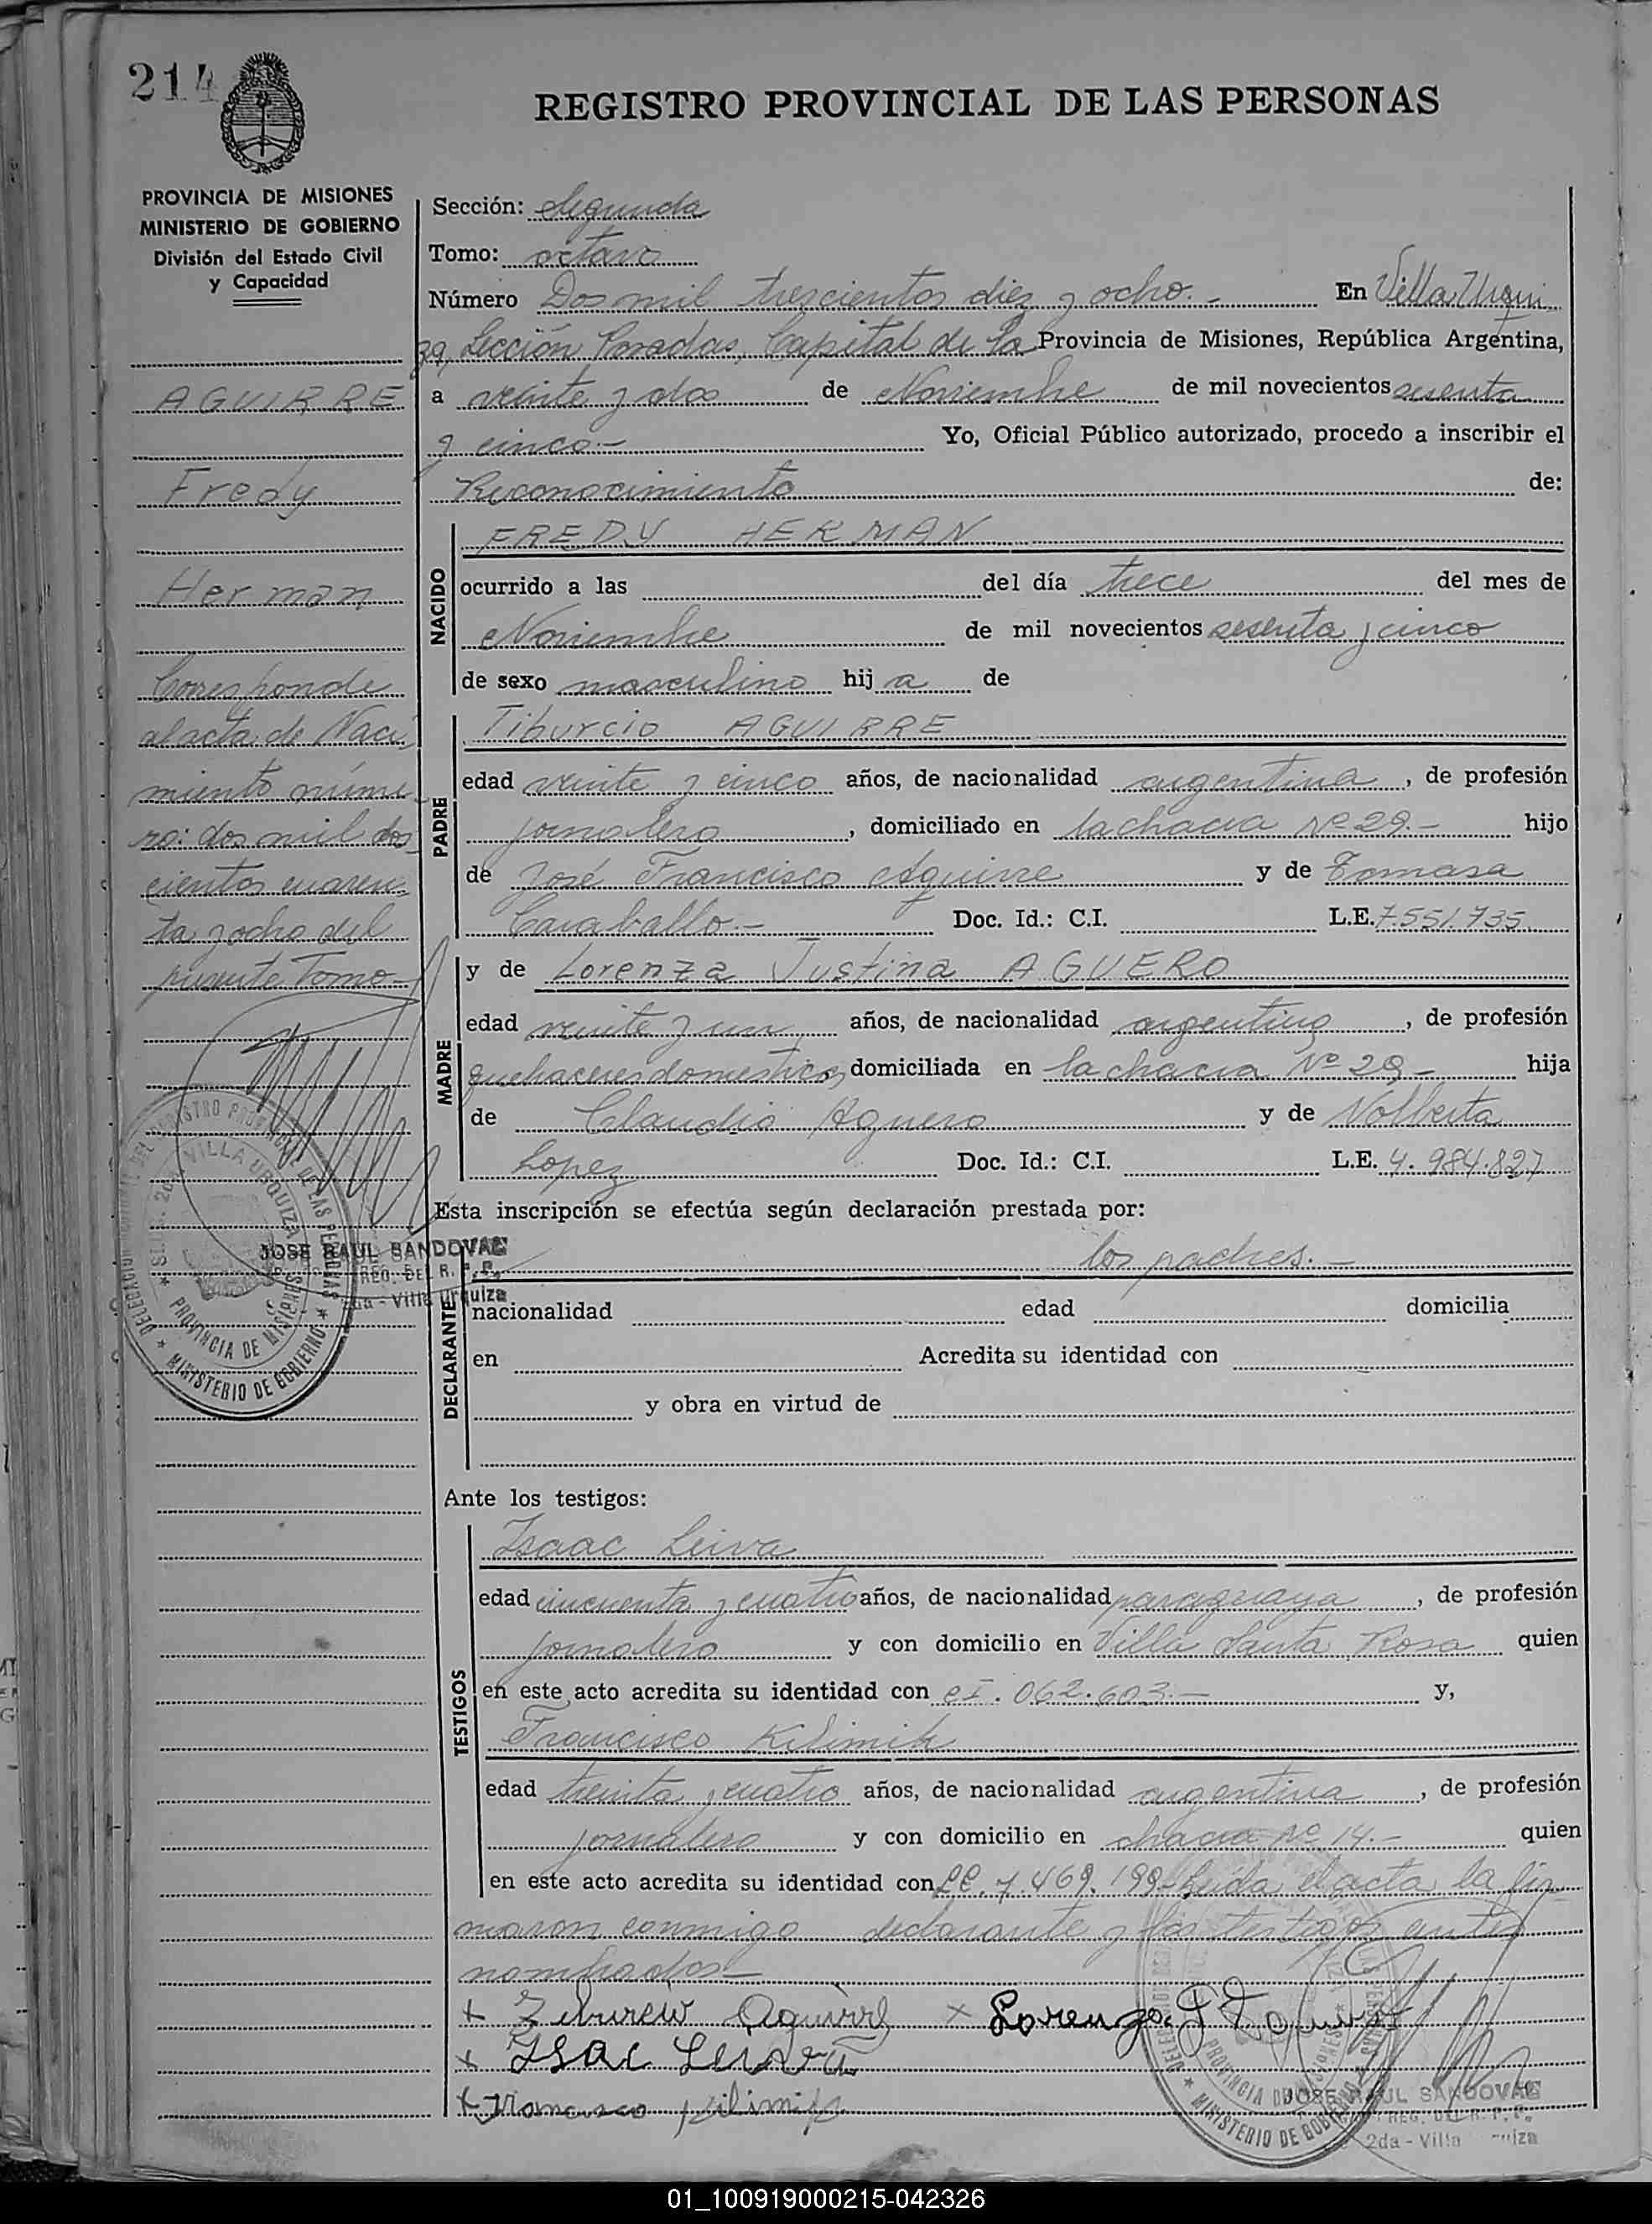 214
REGISTRO PROVINCIAL DE LAS PERSONAS
PROVINCIA DE MISIONES
MINISTERIO DE GOBIERNO
División del Estado Civil
y Capacidad
AGUIRRE
Fredy
Herman
Corresponde
al acta de Naci
miento núme
ro: dos mil dos
cientos cuaren
ta y ocho del
presente Tomo-
Sección: Segunda
Tomo: octavo
Número Dos mil trescientos diez y ocho.- En Villa Urqui
za, Sección Posadas, Capital de la Provincia de Misiones, República Argentina,
a veinte y dos de Noviembre de mil novecientos sesenta
y cinco.- Yo, Oficial Público autorizado, procedo a inscribir el
Reconocimiento de:
NACIDO
FREDY HERMAN
ocurrido a las del día trece del mes de
Noviembre de mil novecientos sesenta y cinco
de sexo masculino hij a de
PADRE
Tiburcio AGUIRRE
edad veinte y cinco años, de nacionalidad argentina, de profesión
jornalero, domiciliado en la chacra Nº 29.- hijo
de José Francisco Aguirre y de Tomasa
Caraballo.- Doc. Id.: C.I. L.E. 7.551.735
MADRE
y de Lorenza Justina AGUERO
edad veinte y un años, de nacionalidad argentina, de profesión
quehaceres domesticos domiciliada en la chacra Nº 29- hija
de Claudio Aguero y de Nolberta
Lopez Doc. Id.: C.I. L.E. 4.984.827
Esta inscripción se efectúa según declaración prestada por:
DECLARANTE
los padres.-
nacionalidad edad domicilia
en Acredita su identidad con
y obra en virtud de
DELEGACION DEL REGISTRO PROVINCIAL DE LAS PERSONAS
VILLA URQUIZA
PROVINCIA DE MISIONES
MINISTERIO DE GOBIERNO
JOSE RAUL SANDOVAL
REG. DEL R. P. P.
2da - Villa Urquiza
Ante los testigos:
TESTIGOS
Isaac Leiva
edad cincuenta y cuatro años, de nacionalidad paraguaya, de profesión
jornalero y con domicilio en Villa Santa Rosa quien
en este acto acredita su identidad con CI. 062.603.- y,
Francisco Kilimik
edad treinta y cuatro años, de nacionalidad argentina, de profesión
jornalero y con domicilio en chacra Nº 14.- quien
en este acto acredita su identidad con LE. 7.469.199- Leída el acta la fir
maron conmigo declarante y los testigos antes
nombrados-
+ Tiburcio Aguirre × Lorenza J
+ Isac Leiva
+ Francisco Kilimik
PROVINCIA DE MISIONES
MINISTERIO DE GOBIERNO
JOSE RAUL SANDOVAL
REG. DEL R. P. P.
2da - Villa
01_100919000215-042326